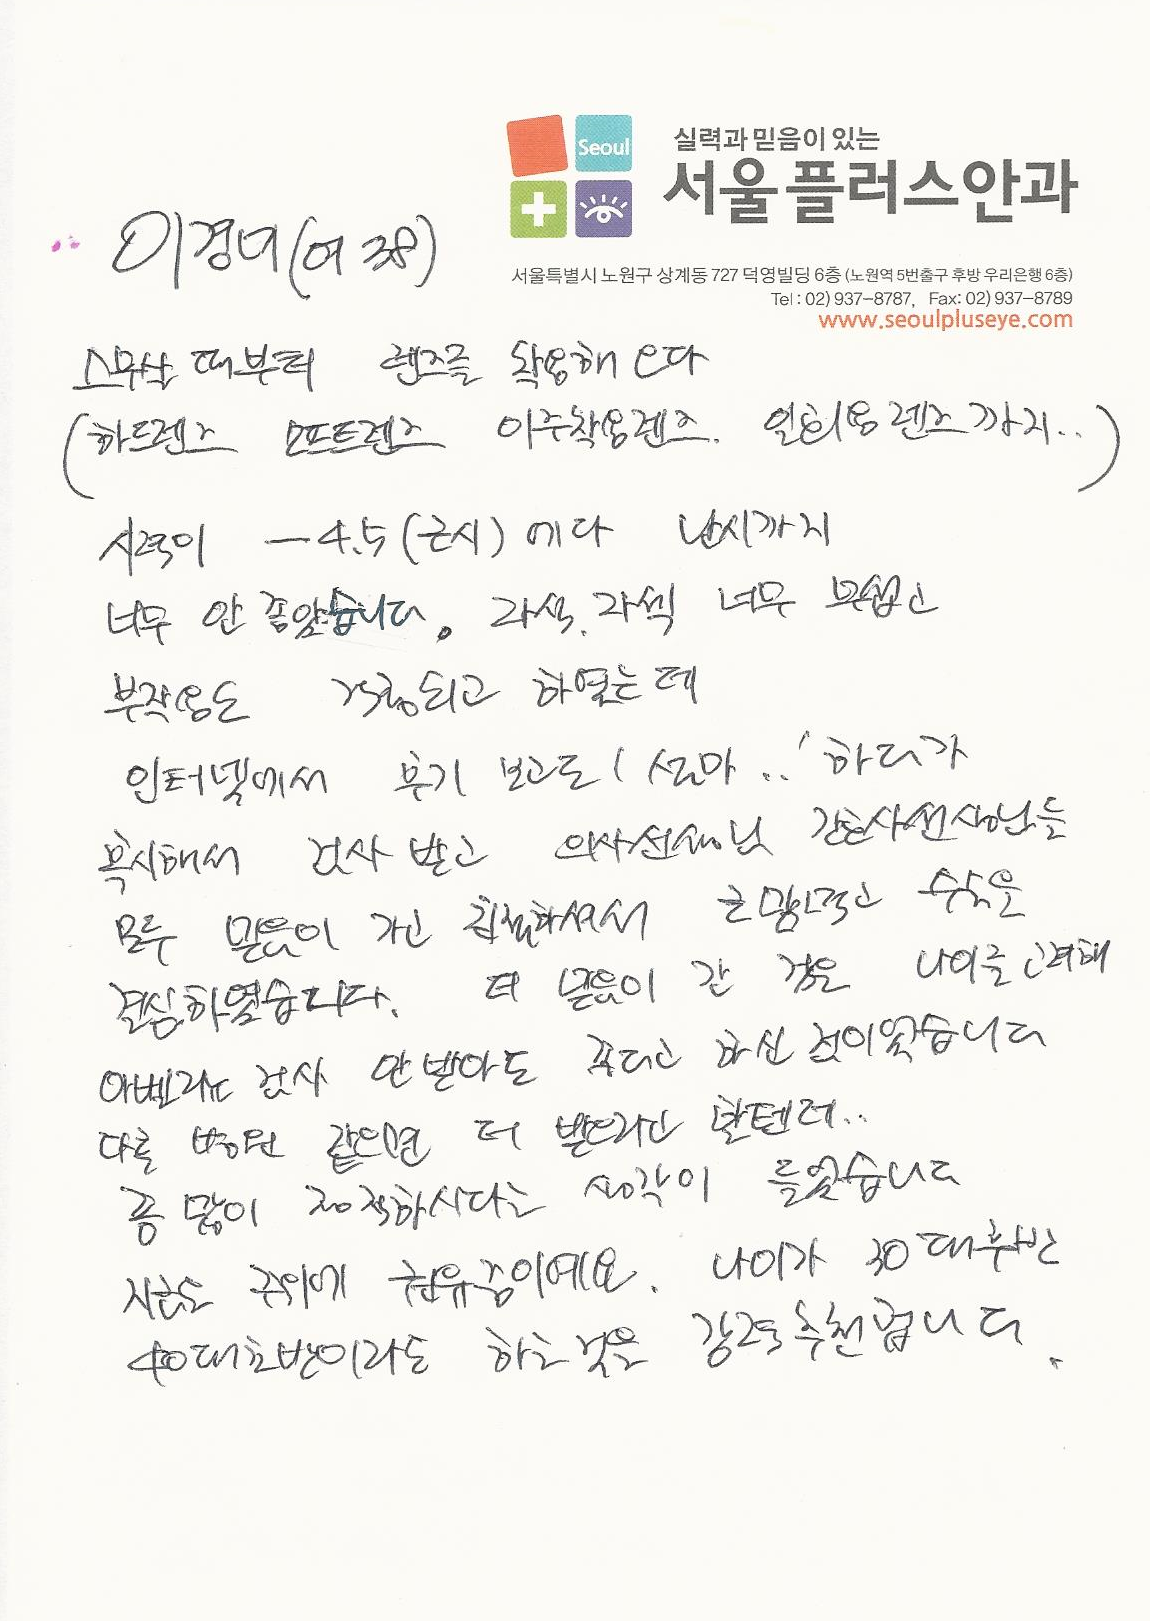 Seoul
실력과 믿음이 있는
서울플러스안과
이경녀(여 38)
서울특별시 노원구 상계동 727 덕영빌딩 6층 (노원역 5번출구 후방 우리은행 6층)
Tel : 02) 937-8787, Fax: 02) 937-8789
www.seoulpluseye.com
스무살 때부터 렌즈를 착용해 오다
(하드렌즈 소프트렌즈 이주착용렌즈. 일회용렌즈까지..)
시력이 -4.5 (근시) 에다 난시까지
너무 안 좋았습니다. 라식. 라섹 너무 무섭고
부작용도 걱정되고 하였는데
인터넷에서 후기 보고도 '설마..' 하다가
혹시해서 검사 받고 의사선생님 간호사선생님들
모두 믿음이 가고 친절하셔서 수술을
결심하였습니다. 더 믿음이 간 점은 나이를 고려해
아벨리노 검사 안받아도 된다고 하신 점이었습니다
다른 병원 같으면 더 받으라고 할텐데..
좀 많이 정직하시다는 생각이 들었습니다
지금도 주위에 권유중이에요. 나이가 30대후반
40대초반이라도 하는 것을 강력추천합니다.